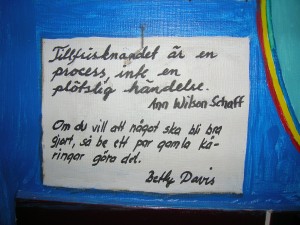 Tillfrisknandet är en
process, inte en
plötslig händelse.
Ann Wilson Schaff
Om du vill att något ska bli bra
gjort, så be ett par gamla kä-
ringar göra det.
Betty Davis